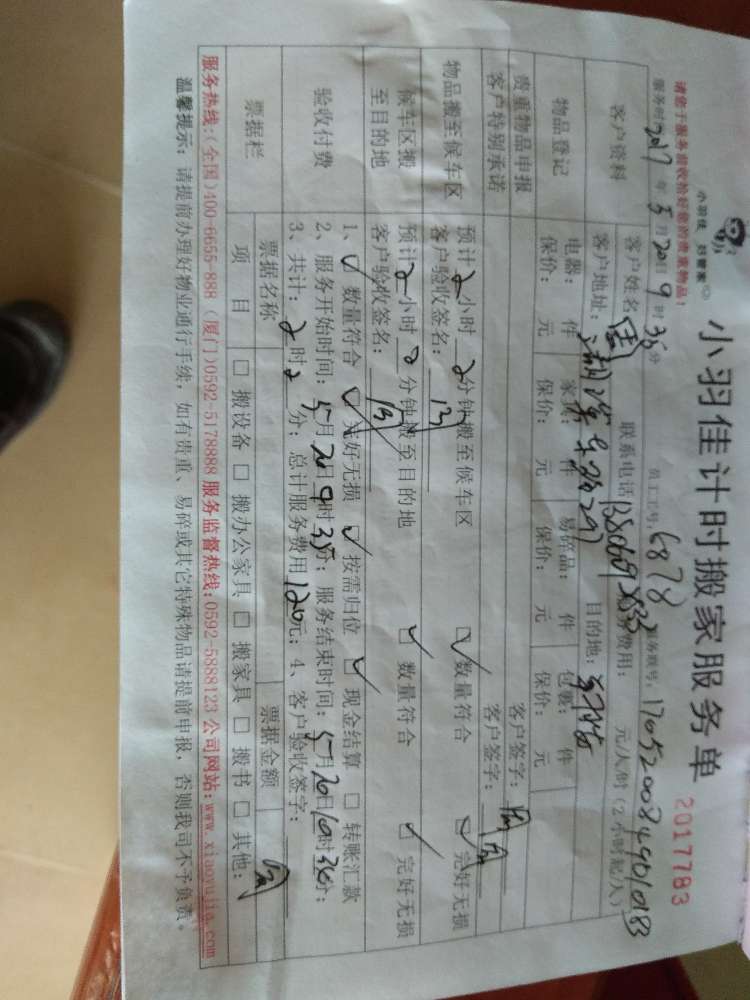 小羽佳 好管家
小羽佳计时搬家服务单 2017783
请您于服务前收拾好您的贵重物品！
员工工号：6878 服务联号：
服务时 2017年5月20日9时35分
客户资料 客户姓名 联系电话 费用： 元/人/时（2小时起/人）
客户地址： 目的地：
物品登记 电器： 件 家具： 件 易碎品： 件 包裹： 件
保价： 元 保价： 元 保价： 元 保价： 元
贵重物品申报 客户签字：
客户特别承诺 客户签字：
物品搬至候车区 预计2小时 分钟搬至候车区 数量符合 完好无损
客户验收签名：
候车区搬至目的地 预计2小时 分钟搬至目的地 数量符合 完好无损
客户验收签名：
验收付费 1、数量符合 完好无损 按需归位 现金结算 转账汇款
2、服务开始时间：5月20日9时35分；服务结束时间：5月20日10时36分；
3、共计：2时2分；总计服务费用120元；4、客户验收签字：
票据栏 票据名称 票据金额
项目 搬设备 搬办公家具 搬家具 搬书 其他：
服务热线：(全国)400-6655-888 (厦门)0592-5178888 服务监督热线：0592-5888123 公司网站：www.xiaoyujia.com
温馨提示：请提前办理好物业通行手续，如有贵重、易碎或其它特殊物品请提前申报，否则我司不予负责。